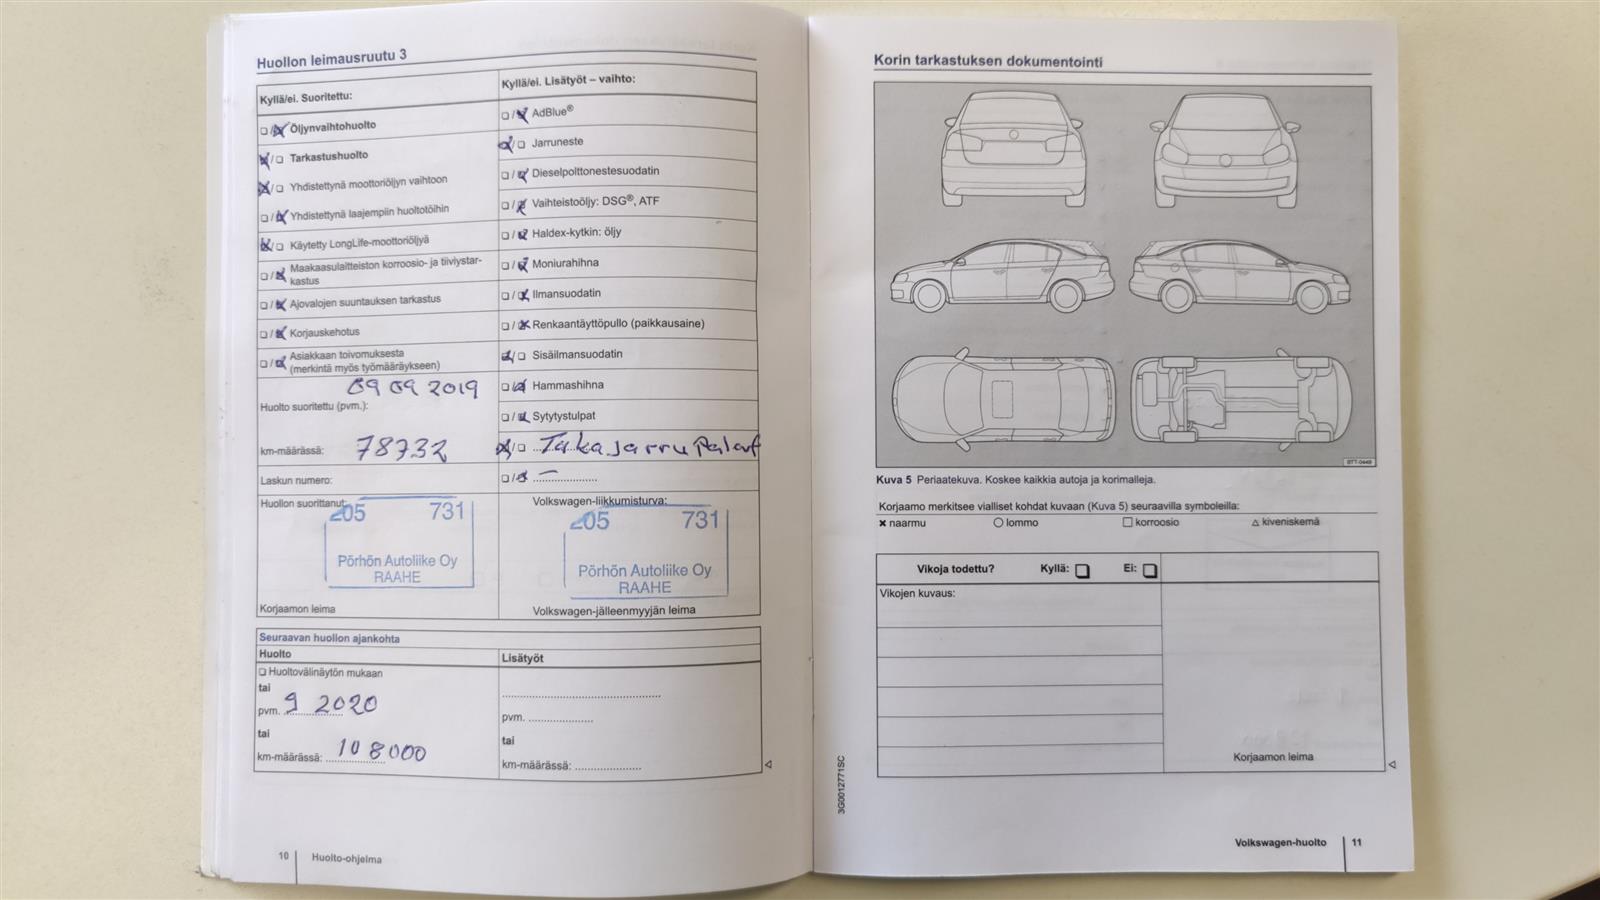 Huollon leimausruutu 3
Kyllä/ei. Suoritettu:
Öljynvaihtohuolto
Tarkastushuolto
Yhdistettynä moottoriöljyn vaihtoon
Yhdistettynä laajempiin huoltotöihin
Käytetty LongLife-moottoriöljyä
Maakaasulaitteiston korroosio- ja tiiviystar-
kastus
Ajovalojen suuntauksen tarkastus
Korjauskehotus
Asiakkaan toivomuksesta
(merkintä myös työmääräykseen)
09 09 2019
Huolto suoritettu (pvm.):
km-määrässä: 78732
Laskun numero:
Huollon suorittanut:
205 731
Pörhön Autoliike Oy
RAAHE
Korjaamon leima
Kyllä/ei. Lisätyöt – vaihto:
AdBlue®
Jarruneste
Dieselpolttonestesuodatin
Vaihteistoöljy: DSG®, ATF
Haldex-kytkin: öljy
Moniurahihna
Ilmansuodatin
Renkaantäyttöpullo (paikkausaine)
Sisäilmansuodatin
Hammashihna
Sytytystulpat
Taka jarru Palat
Volkswagen-liikkumisturva:
205 731
Pörhön Autoliike Oy
RAAHE
Volkswagen-jälleenmyyjän leima
Seuraavan huollon ajankohta
Huolto
Huoltovälinäytön mukaan
tai
pvm. 9 2020
tai
km-määrässä: 108000
Lisätyöt
pvm.
tai
km-määrässä:
10 Huolto-ohjelma
Korin tarkastuksen dokumentointi
BTT-0449
Kuva 5 Periaatekuva. Koskee kaikkia autoja ja korimalleja.
Korjaamo merkitsee vialliset kohdat kuvaan (Kuva 5) seuraavilla symboleilla:
naarmu lommo korroosio kiveniskemä
Vikoja todettu? Kyllä: Ei:
Vikojen kuvaus:
Korjaamon leima
3G0012771SC
Volkswagen-huolto 11